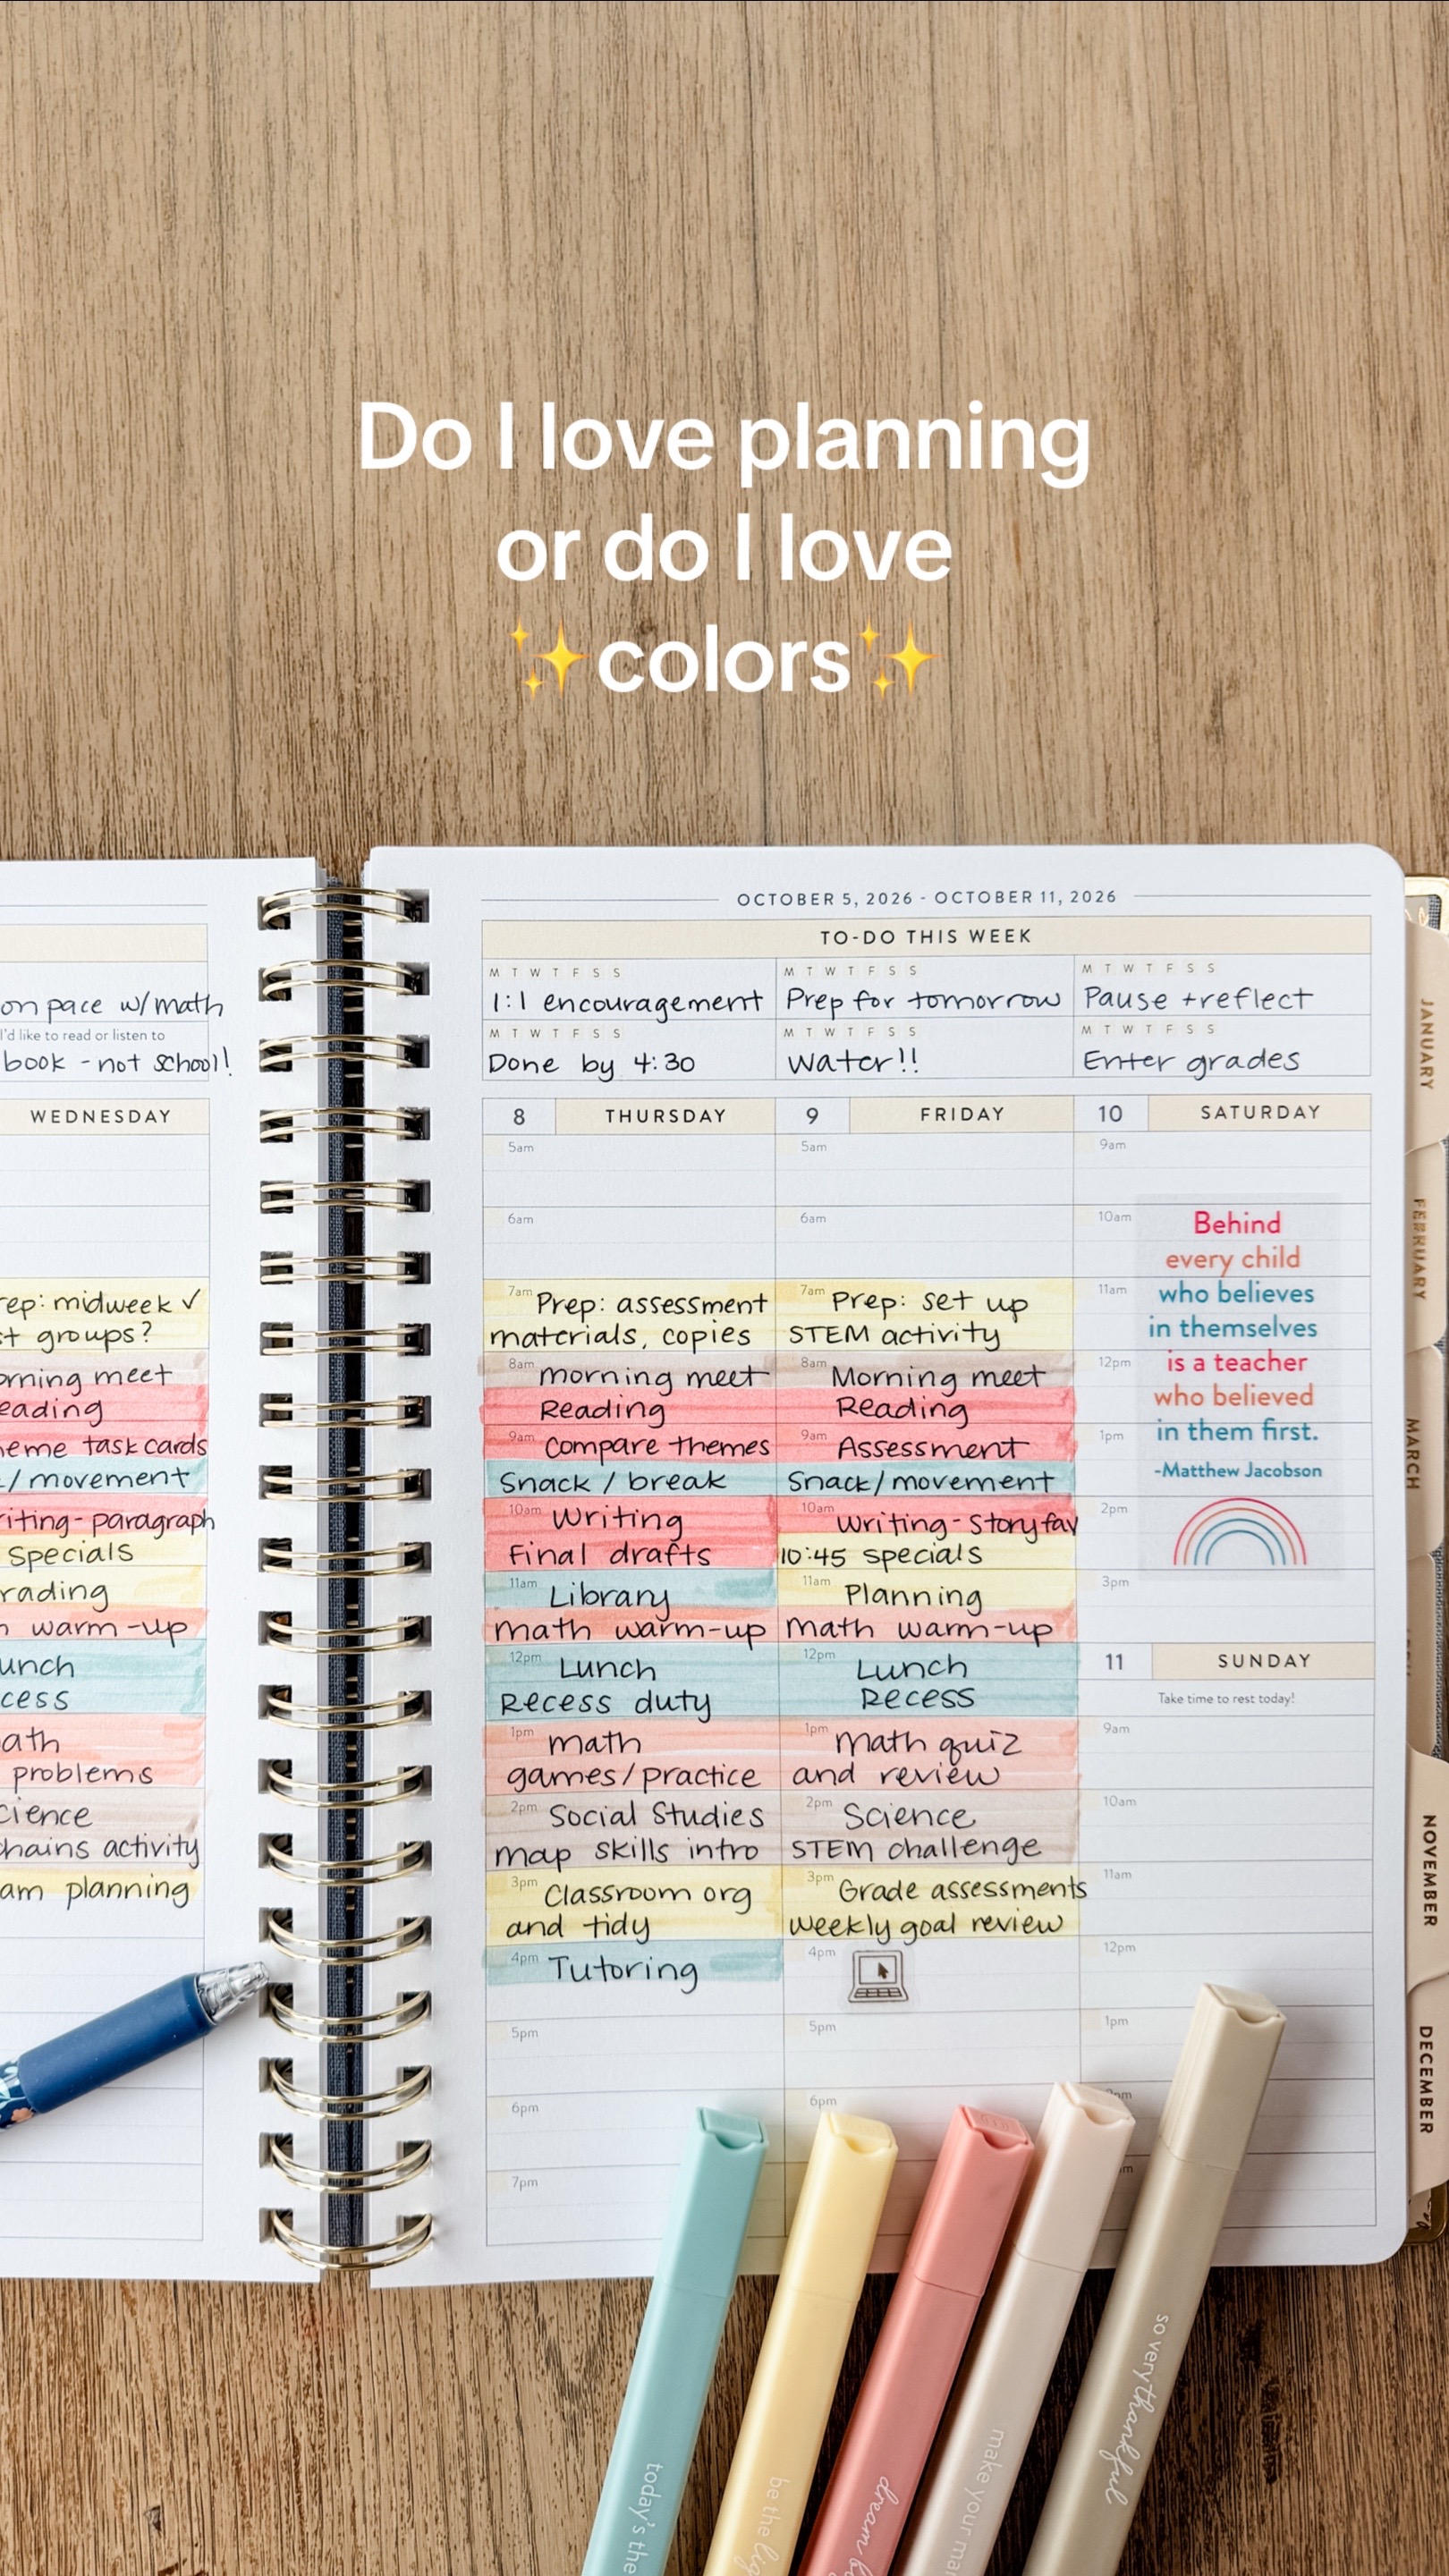 Do I love planning
or do I love
✨colors✨
OCTOBER 5, 2026 - OCTOBER 11, 2026
TO-DO THIS WEEK
M T W T F S S
1:1 encouragement
M T W T F S S
Done by 4:30
M T W T F S S
Prep for tomorrow
M T W T F S S
Water!!
M T W T F S S
Pause + reflect
M T W T F S S
Enter grades
on pace w/math
I'd like to read or listen to
book - not school!
WEDNESDAY
midweek ✓
groups?
meet
task cards
/ movement
paragraph
Specials
warm-up
problems
activity
planning
8 THURSDAY
5am
6am
7am Prep: assessment
materials, copies
8am morning meet
Reading
9am Compare themes
Snack / break
10am Writing
Final drafts
11am Library
math warm-up
12pm Lunch
Recess duty
1pm math
games/practice
2pm Social Studies
map skills intro
3pm Classroom org
and tidy
4pm Tutoring
5pm
6pm
7pm
9 FRIDAY
5am
6am
7am Prep: set up
STEM activity
8am Morning meet
Reading
9am Assessment
Snack/movement
10am Writing - Story fav
10:45 specials
11am Planning
Math warm-up
12pm Lunch
Recess
1pm Math quiz
and review
2pm Science
STEM challenge
3pm Grade assessments
weekly goal review
4pm
5pm
6pm
10 SATURDAY
9am
10am
11am
12pm
1pm
2pm
3pm
Behind
every child
who believes
in themselves
is a teacher
who believed
in them first.
-Matthew Jacobson
11 SUNDAY
Take time to rest today!
9am
10am
11am
12pm
1pm
JANUARY
FEBRUARY
MARCH
NOVEMBER
DECEMBER
today's the
be the
dream
make your
so very thankful